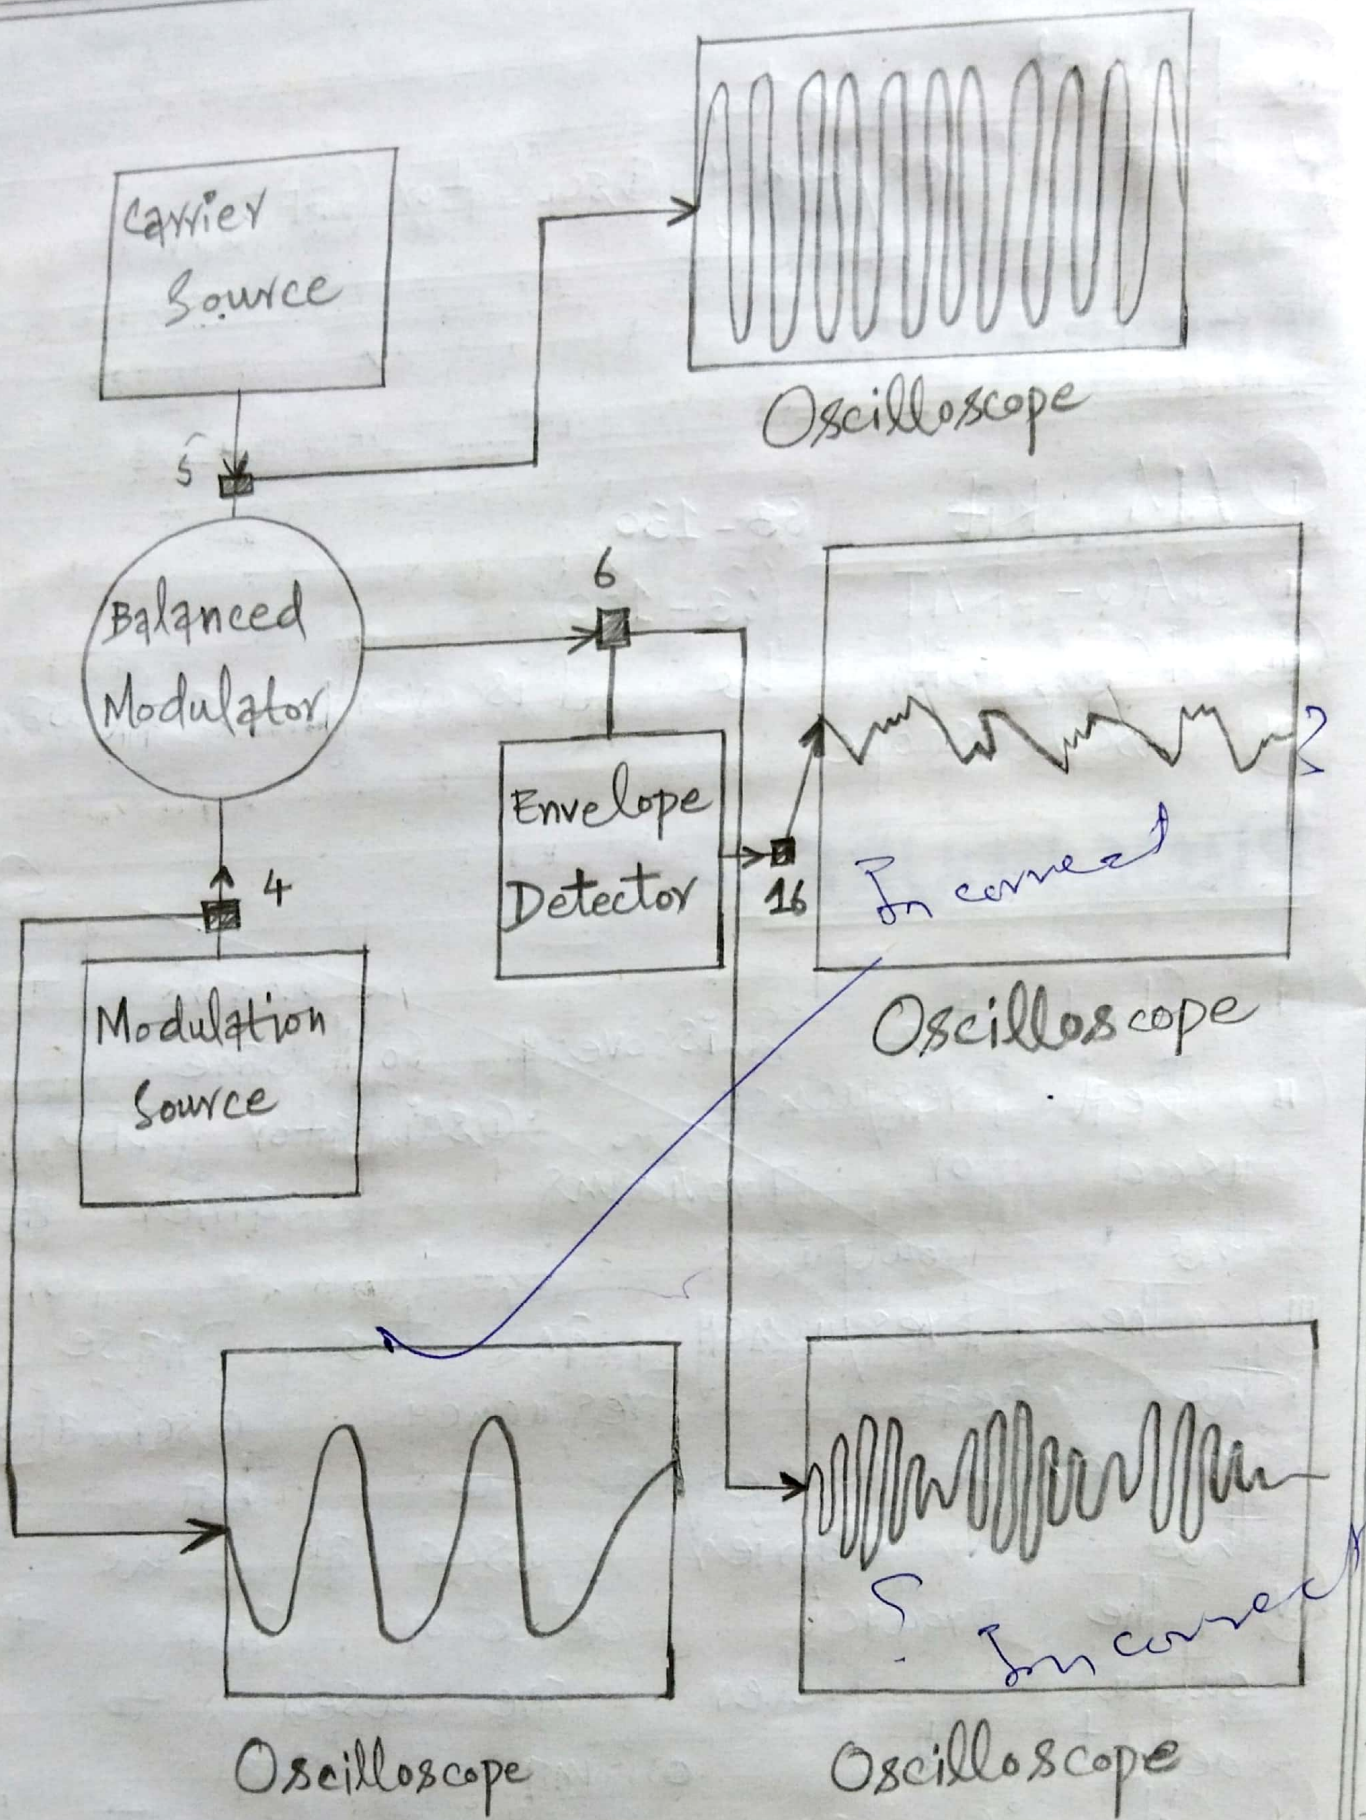 Carrier
Source
5
Oscilloscope
Balanced
Modulator
6
Envelope
Detector
16
?
Incorrect
Oscilloscope
4
Modulation
Source
?
Incorrect
Oscilloscope
Oscilloscope